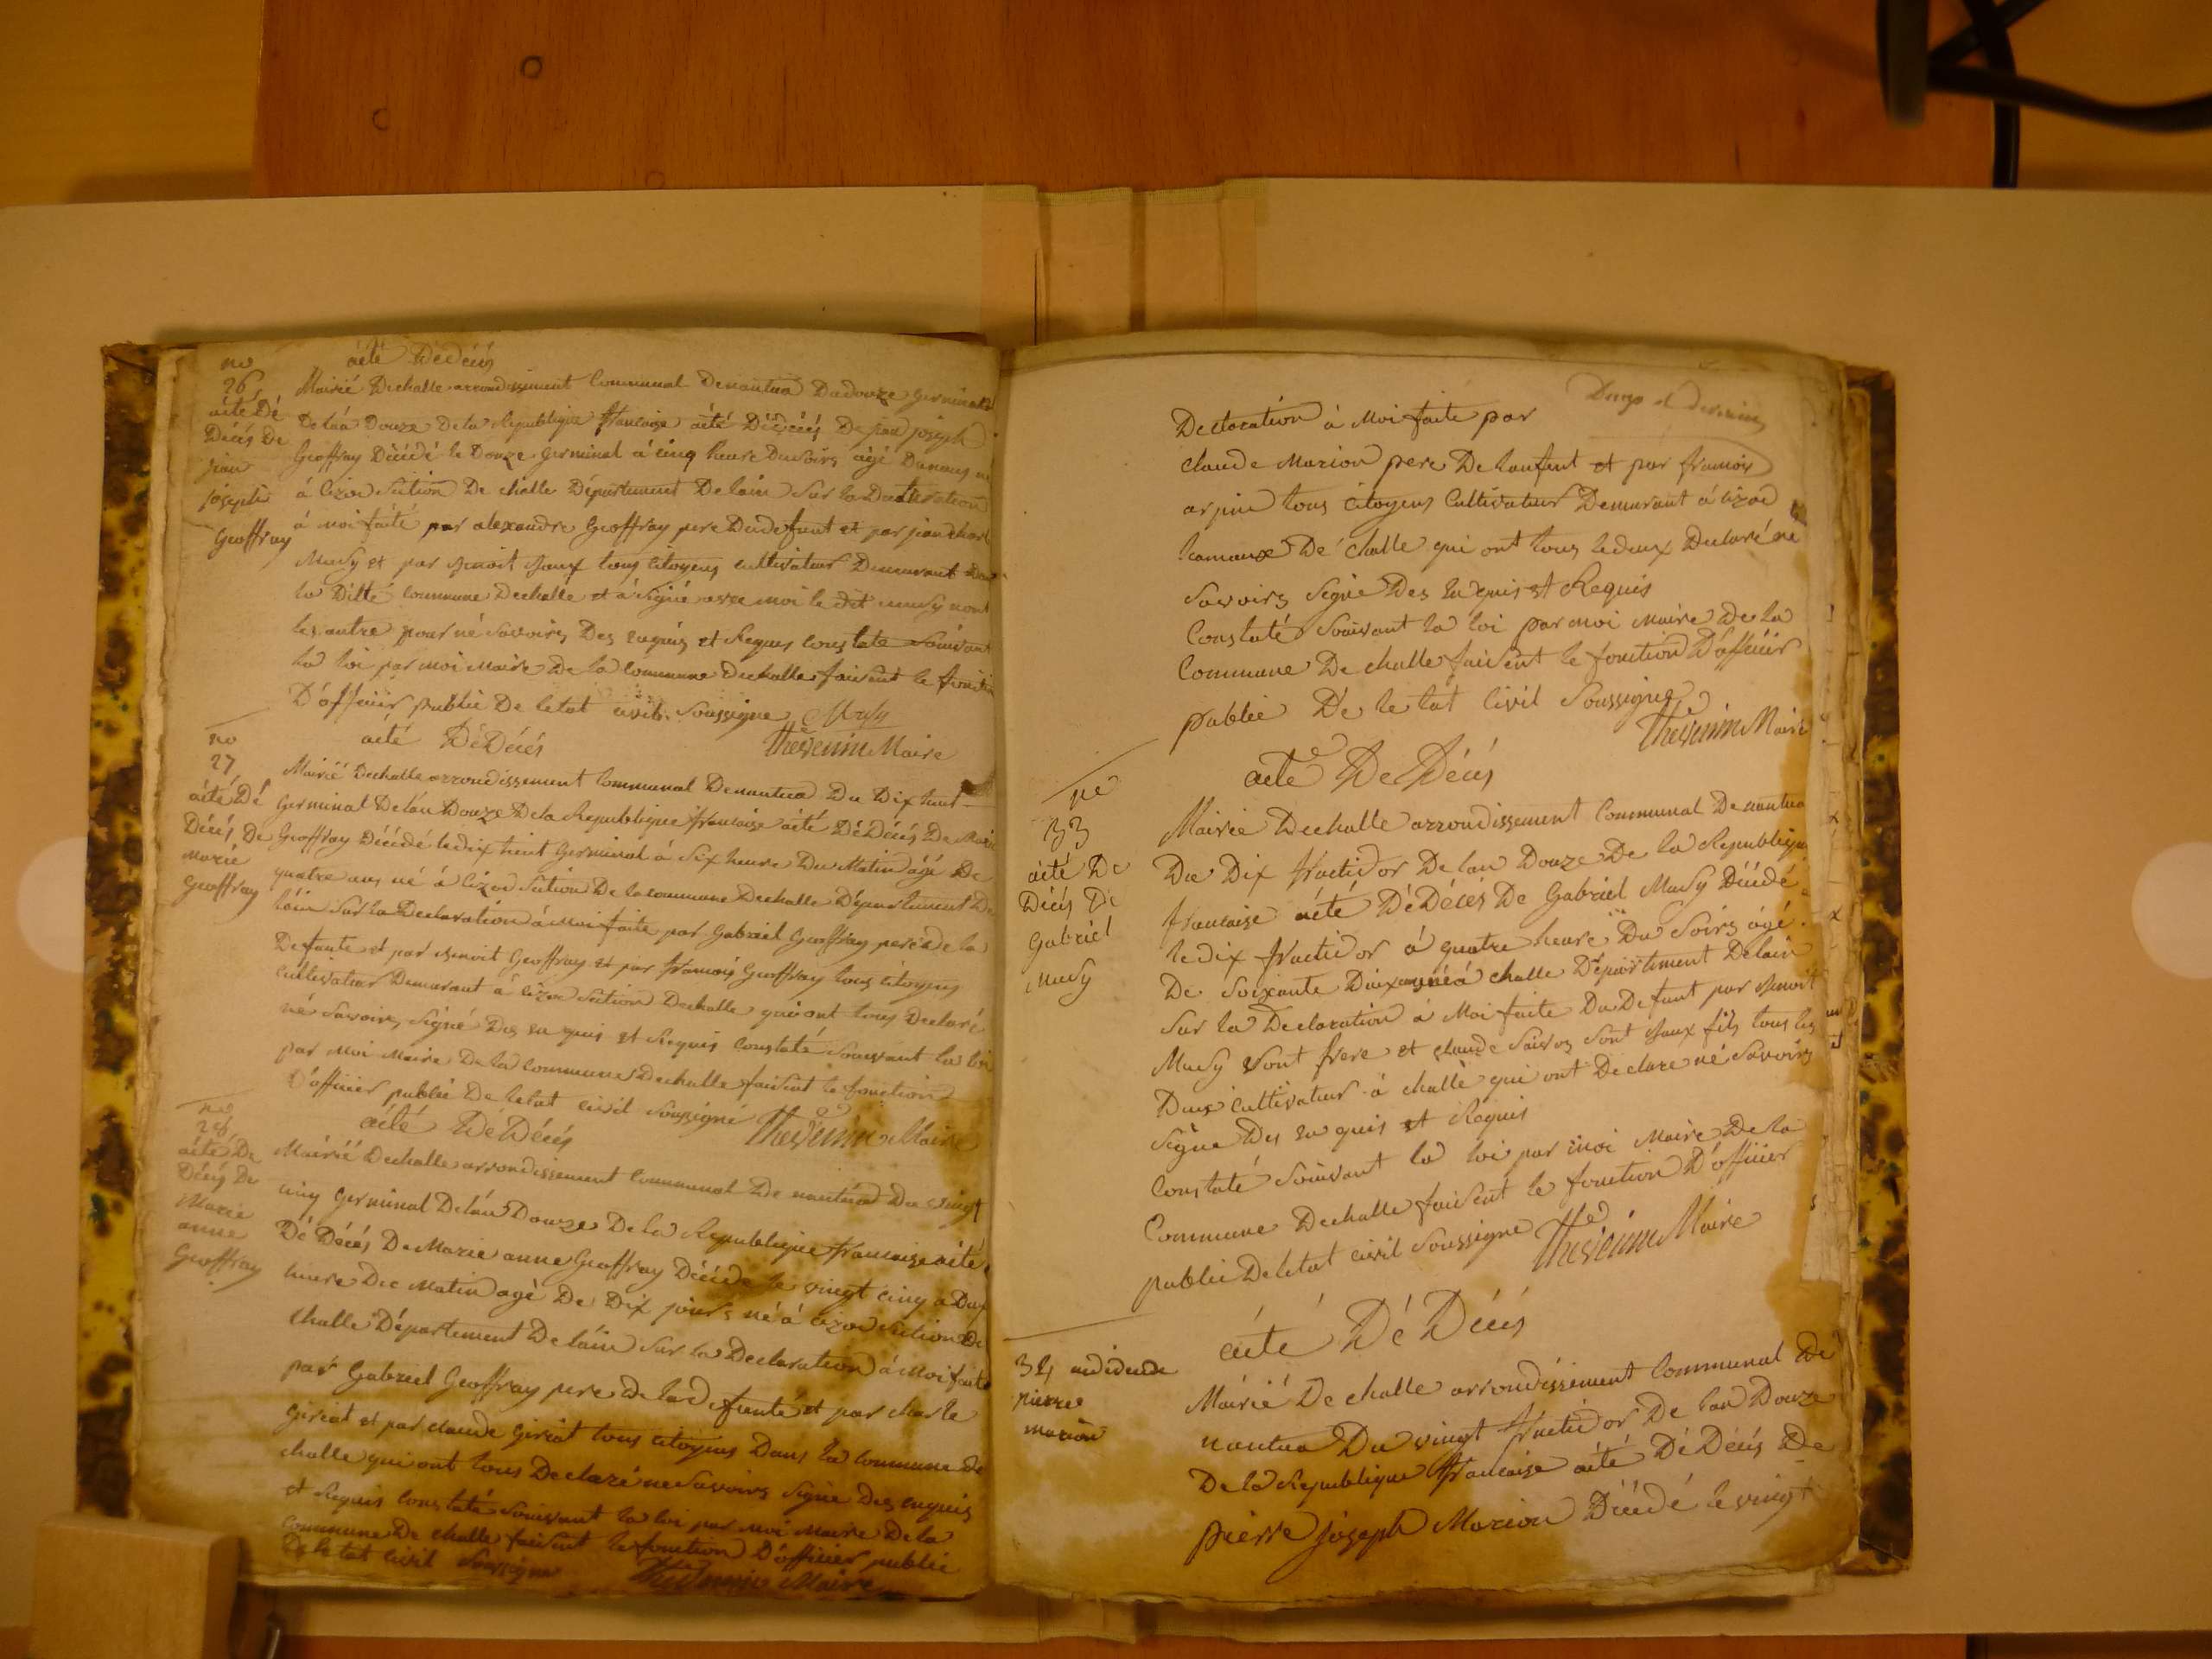 no
26
acté Dé
Décés De
jean
joseph
Geoffray
acté Dedécés
Mairié Dechalle arrondissement Communal Denantua Dudouze germinal
Delan Douze Dela Republique francaise acté Dédécés De jean joseph
Geoffray Décédé le Douze germinal á cinq heure Dusoirs agé
á cizod Séction De challe Département Delain Sur la Declaration
á moi faité par alexandre Geoffray pere Dudefunt et par jean
Musy et par Benoit tous citoyens cultivateur Demeurant
la Ditté commune Dechalle et á Signé avec moi le dit musy nont
les autre pour né Savoirs Des enquis et Requis constate Souivant
la loi par moi Maire De la commune Dechalle faisent le fonction
D'officier public De letat civil Soussigne Musy
Thevenin Maire
no
27
acté Dé
Décés De
Marié
Geoffray
acté DéDécés
Mairié Dechalle arrondissement Communal Denantua Du Dix huit
Germinal Delan Douze Dela Republique francaise acté DéDécés De Marie
Geoffray Décédé ledix huit Germinal á Six heure Du Matin ágé De
quatre ans né á cizod Section De la commune Dechalle Département De
láin Sur la Declaration á Moi faite par Gabriel Geoffray pere de la
Defunte et par Benoit Geoffray et par francois Geoffray tous citoyens
cultivateur Demeurant á cizod Section Dechalle qui ont tous Declaré
né Savoirs Signé Des enquis et Requis Constaté Souivant la loi
par Moi Maire De la commune Dechalle faisent le fonction
D'officier public De letat civil Soussigné Thevenin Maire
no
28
acté De
Décés De
Marie
anne
Geoffray
acté DéDécés
Mairié Dechalle arrondissement Communal De nantua Du vingt
cinq Germinal Delán Douze De la Republique francaise acté
Dé Décés De Marie anne Geoffray Décéde le vingt cinq a Dux
heure Du Matin agé De Dix jours né á cizod Section De
challe Département De láin Sur la Declaration á Moi faite
par Gabriel Geoffray pere De la Defunté et par charle
Giriat et par claude Giriat tous citoyens Dans la commune De
challe qui ont tous Declaré ne Savoirs Signe Des enquis
et Requis Constaté Souivant la loi par moi Maire De la
Commune De challe faisent le fonction D'officier public
De le tat civil Soussigne Thevenin Maire
Declaration á Moi faite par
claude Marion pere De lanfent et par francois
arpin tous citoyens Cultivateur Demurant á cizod
hamaux De challe qui ont tous ledeux Declaré né
Savoirs Signe Des enquis et Requis
Constaté Souivant la loi par moi Maire De la
Commune De challe faisent le fonction D'officier
public De le tat Civil Soussigne
Thevenin Maire
no
33
acté De
Décés De
Gabriel
Musy
acte De Décés
Mairie Dechalle arrondissement Communal De nantua
Du Dix fructidor De lan Douze De la Republique
francaise acté DéDécés De Gabriel Musy Décédé
le dix fructidor á quatre heure Du Soirs ágé
De Soixante né á challe Département Delain
Sur la Declaration á Moi faite Du Defunt par Benoit
Musy Sont frere et claude Sont Baux fils tous les
Dux Cultivateur á challe qui ont Declare né Savoirs
Signe Des enquis et Requis
Constaté Souivant la loi par moi Maire De la
Commune Dechalle faisent le fonction D'officier
public De letat civil Soussigne Thevenin Maire
34
pierre
marion
acté Dé Décés
Mairié De challe arrondissement Communal De
nantua Du vingt fructidor De lan Douze
De la Republique francaise acté Dé Décés De
pierre joseph Marion Décédé le vingt